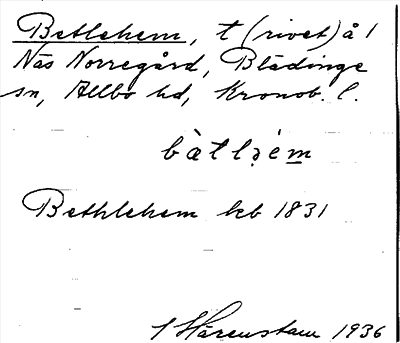 Betlehem, t (rivet) å 1
Näs Norregård, Blädinge
sn, Allbo hd, Kronob. l.
bètlḥém
Bethlehem kb 1831
Härenstam 1936